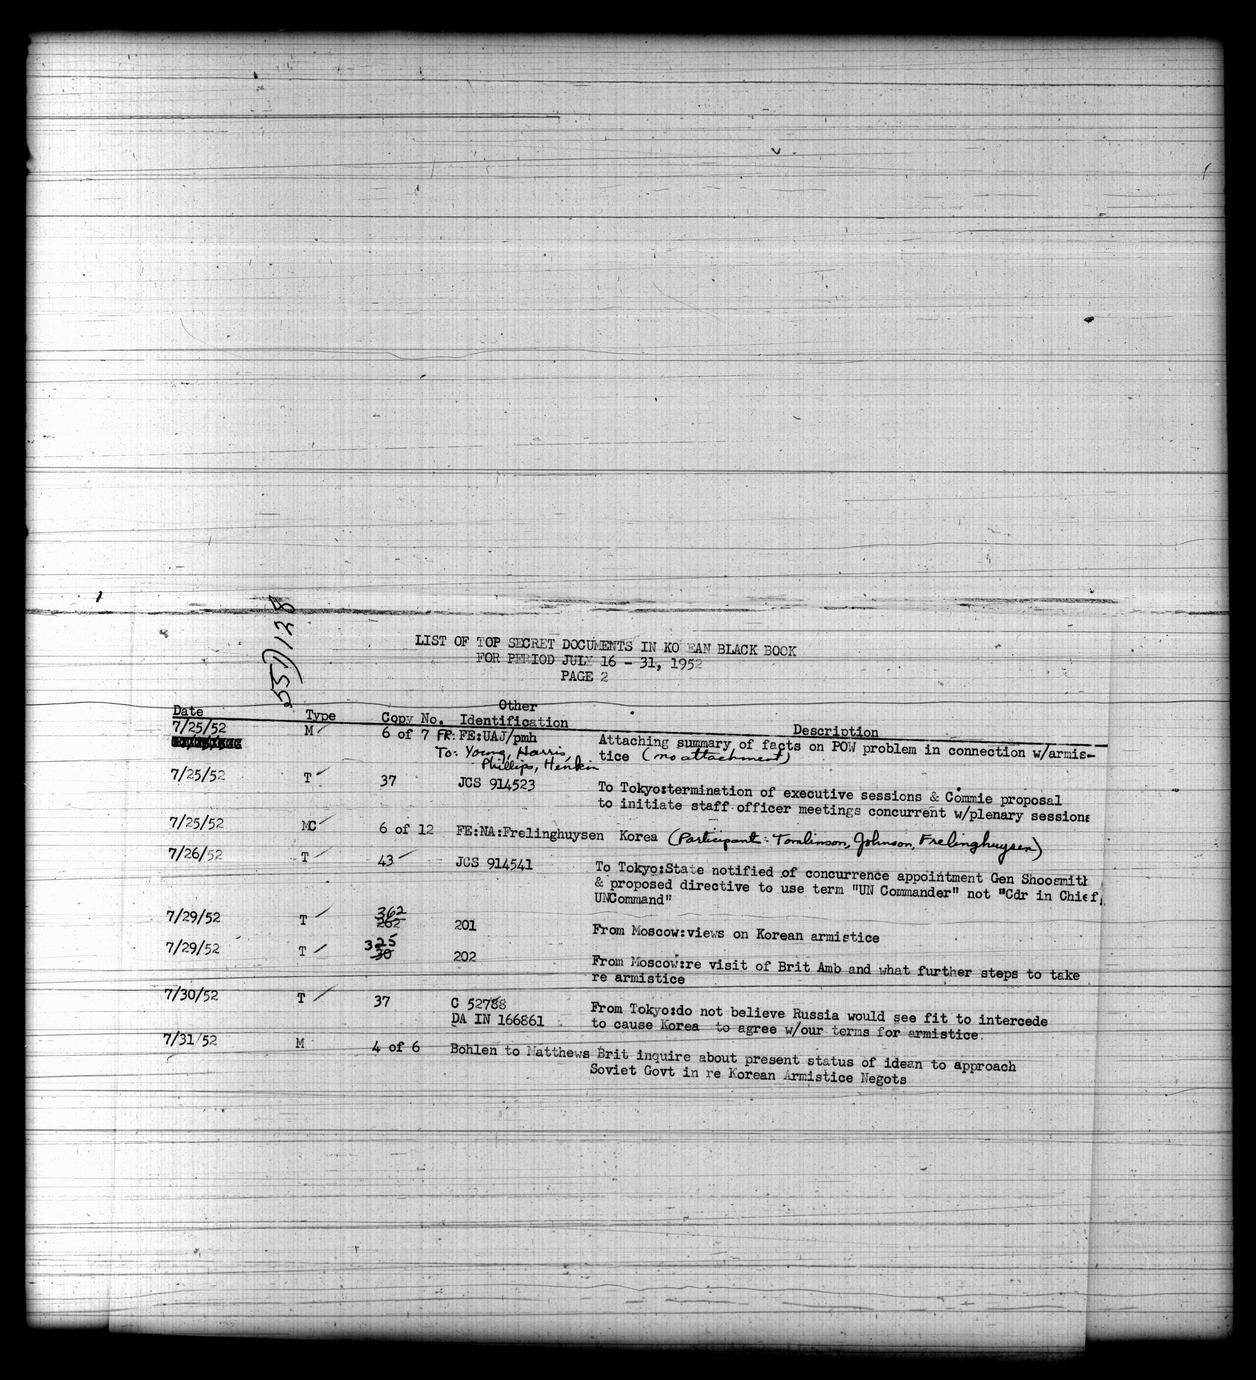 LIST OF TOP SECRET DOCUMENTS IN KO EAN BLACK BOOK
FOR PERIOD JULY 16 - 31, 1952
PAGE 2
Date Type Copy No. Other Identification Description
7/25/52 M 6 of 7 FR: FE:UAJ/pmh Attaching summary of facts on POW problem in connection w/armis-
To: Young, Harris, tice (no attachment)
Phillips, Henkin
7/25/52 T 37 JCS 914523 To Tokyo:termination of executive sessions & Commie proposal
to initiate staff officer meetings concurrent w/plenary sessions
7/25/52 MC 6 of 12 FE:NA:Frelinghuysen Korea (Participant: Tomlinson, Johnson, Frelinghuysen)
7/26/52 T 43 JCS 914541 To Tokyo:State notified of concurrence appointment Gen Shoosmith
& proposed directive to use term "UN Commander" not "Cdr in Chief,
UNCommand"
7/29/52 T 362 262 201 From Moscow:views on Korean armistice
7/29/52 T 325 30 202 From Moscow:re visit of Brit Amb and what further steps to take
re armistice
7/30/52 T 37 C 52788 From Tokyo:do not believe Russia would see fit to intercede
DA IN 166861 to cause Korea to agree w/our terms for armistice.
7/31/52 M 4 of 6 Bohlen to Matthews Brit inquire about present status of idean to approach
Soviet Govt in re Korean Armistice Negots